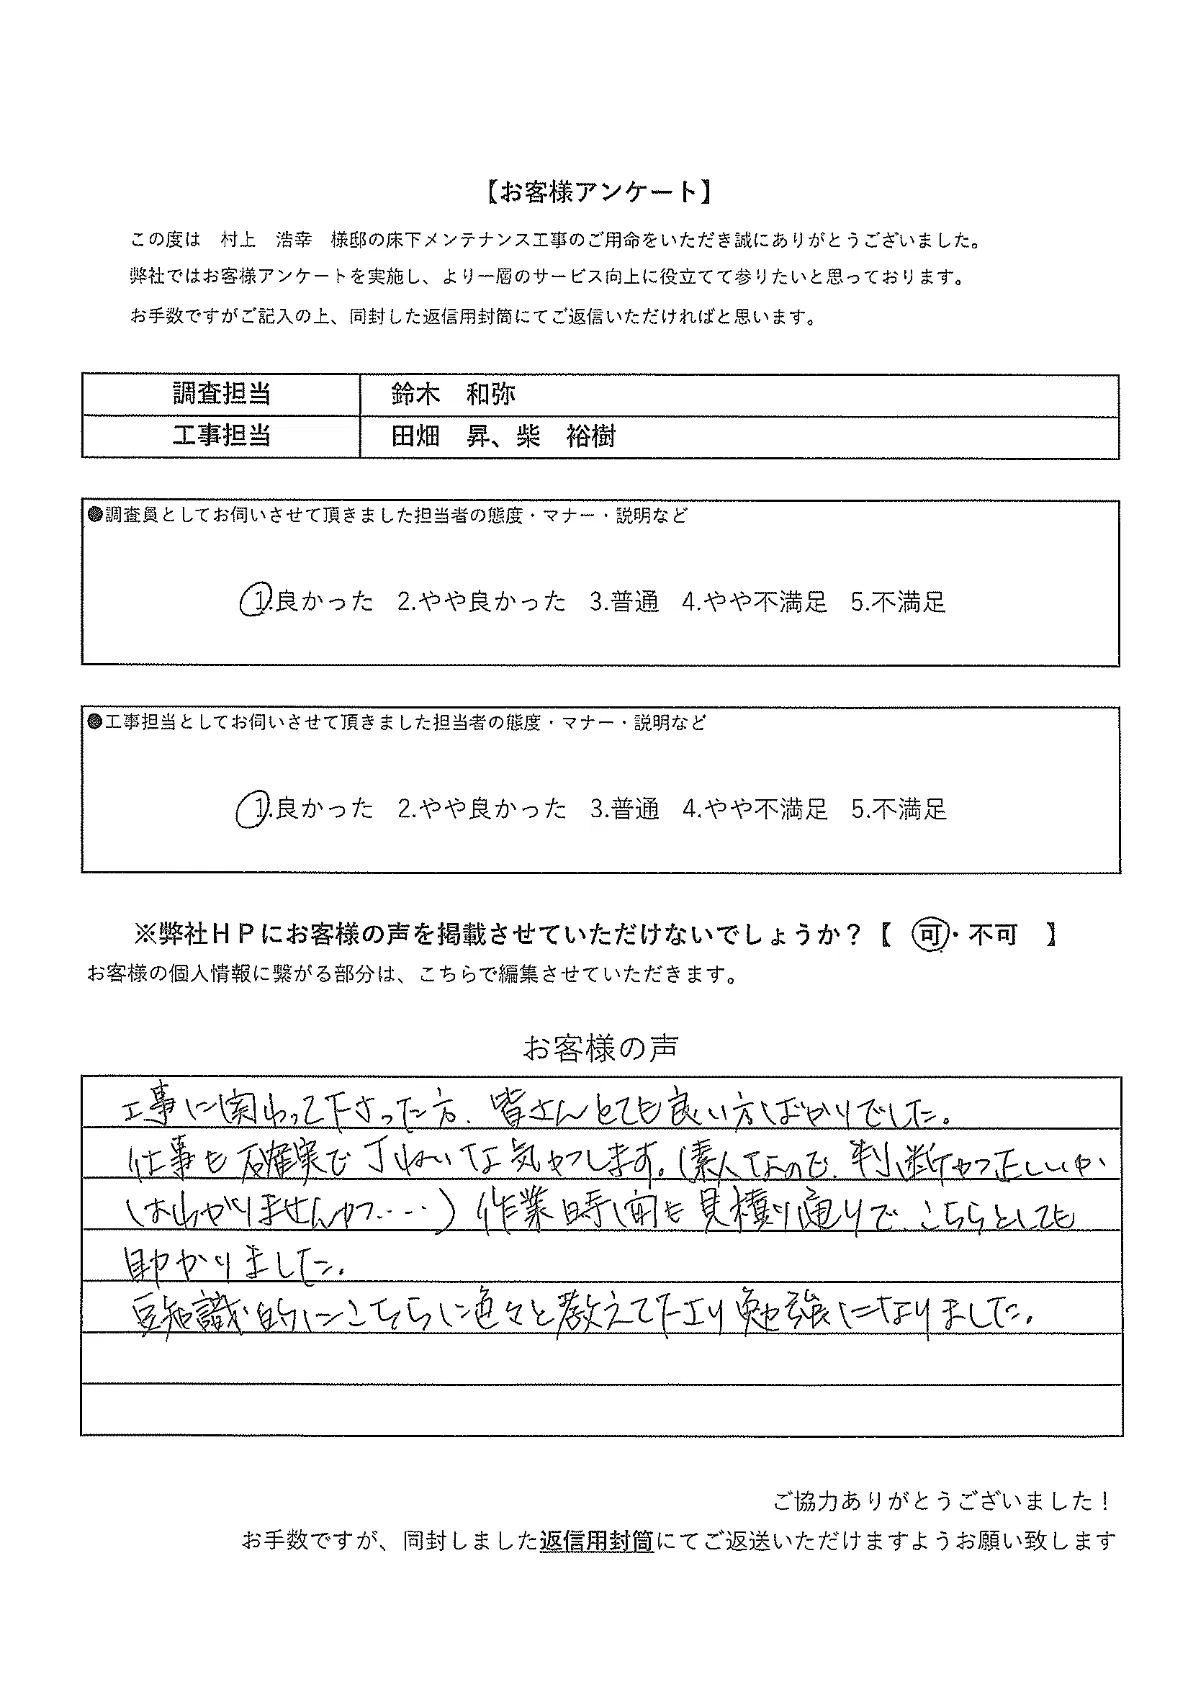 【お客様アンケート】
この度は　村上　浩幸　様邸の床下メンテナンス工事のご用命をいただき誠にありがとうございました。
弊社ではお客様アンケートを実施し、より一層のサービス向上に役立てて参りたいと思っております。
お手数ですがご記入の上、同封した返信用封筒にてご返信いただければと思います。
調査担当　鈴木　和弥
工事担当　田畑　昇、柴　裕樹
●調査員としてお伺いさせて頂きました担当者の態度・マナー・説明など
1.良かった　2.やや良かった　3.普通　4.やや不満足　5.不満足
●工事担当としてお伺いさせて頂きました担当者の態度・マナー・説明など
1.良かった　2.やや良かった　3.普通　4.やや不満足　5.不満足
※弊社ＨＰにお客様の声を掲載させていただけないでしょうか？【　可・不可　】
お客様の個人情報に繋がる部分は、こちらで編集させていただきます。
お客様の声
工事に関わって下さった方、皆さんとても良い方ばかりでした。
仕事も確実で丁ねいな気がします。(素人なので、判断が正しいか
はわかりませんが‥‥)作業時間も見積り通りで、こちらとしても
助かりました。
豆知識的にこちらに色々と教えて下さり勉強になりました。
ご協力ありがとうございました！
お手数ですが、同封しました返信用封筒にてご返送いただけますようお願い致します